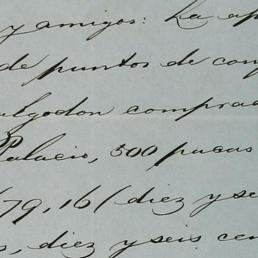 y amigos: La ap
de puntos de con
algodon comprad
Palacio, 500 pacas
79,16 (diez y se
, diez y seis cen